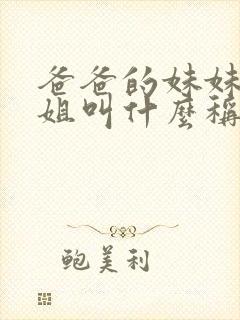 爸爸的妹妹
姐叫什麼稱
鲍美利